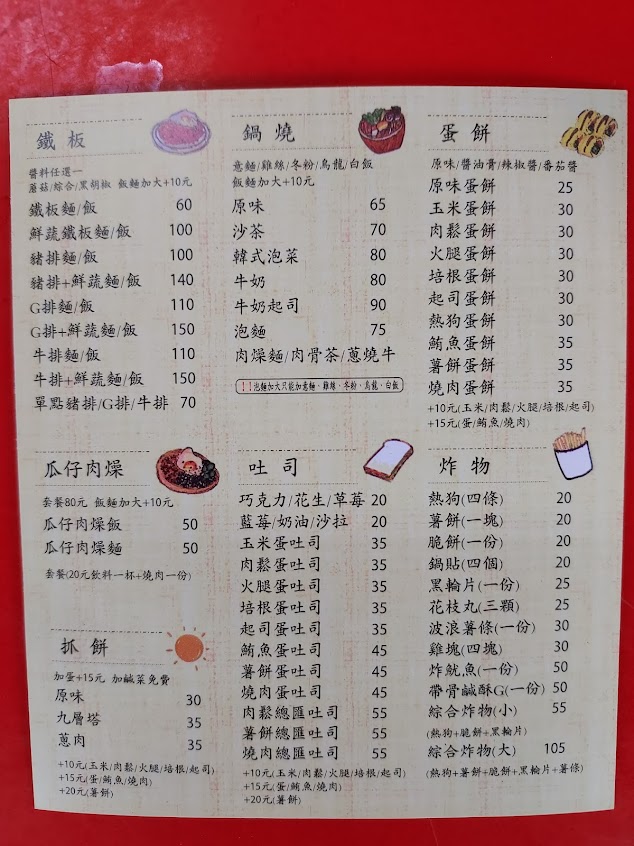 鐵板
醬料任選一
蘑菇/綜合/黑胡椒 飯麵加大+10元
鐵板麵/飯 60
鮮蔬鐵板麵/飯 100
豬排麵/飯 100
豬排+鮮蔬麵/飯 140
G排麵/飯 110
G排+鮮蔬麵/飯 150
牛排麵/飯 110
牛排+鮮蔬麵/飯 150
單點豬排/G排/牛排 70
瓜仔肉燥
套餐80元 飯麵加大+10元
瓜仔肉燥飯 50
瓜仔肉燥麵 50
套餐(20元飲料一杯+燒肉一份)
抓餅
加蛋+15元 加鹹菜免費
原味 30
九層塔 35
蔥肉 35
+10元(玉米/肉鬆/火腿/培根/起司)
+15元(蛋/鮪魚/燒肉)
+20元(薯餅)
鍋燒
意麵/雞絲/冬粉/烏龍/白飯
飯麵加大+10元
原味 65
沙茶 70
韓式泡菜 80
牛奶 80
牛奶起司 90
泡麵 75
肉燥麵/肉骨茶/蔥燒牛
!!泡麵加大只能加意麵、雞絲、冬粉、烏龍、白飯
吐司
巧克力/花生/草莓 20
藍莓/奶油/沙拉 20
玉米蛋吐司 35
肉鬆蛋吐司 35
火腿蛋吐司 35
培根蛋吐司 35
起司蛋吐司 35
鮪魚蛋吐司 45
薯餅蛋吐司 45
燒肉蛋吐司 45
肉鬆總匯吐司 55
薯餅總匯吐司 55
燒肉總匯吐司 55
+10元(玉米/肉鬆/火腿/培根/起司)
+15元(蛋/鮪魚/燒肉)
+20元(薯餅)
蛋餅
原味/醬油膏/辣椒醬/番茄醬
原味蛋餅 25
玉米蛋餅 30
肉鬆蛋餅 30
火腿蛋餅 30
培根蛋餅 30
起司蛋餅 30
熱狗蛋餅 30
鮪魚蛋餅 35
薯餅蛋餅 35
燒肉蛋餅 35
+10元(玉米/肉鬆/火腿/培根/起司)
+15元(蛋/鮪魚/燒肉)
炸物
熱狗(四條) 20
薯餅(一塊) 20
脆餅(一份) 20
鍋貼(四個) 20
黑輪片(一份) 25
花枝丸(三顆) 25
波浪薯條(一份) 30
雞塊(四塊) 30
炸魷魚(一份) 50
帶骨鹹酥G(一份) 50
綜合炸物(小) 55
(熱狗+脆餅+黑輪片)
綜合炸物(大) 105
(熱狗+薯餅+脆餅+黑輪片+薯條)